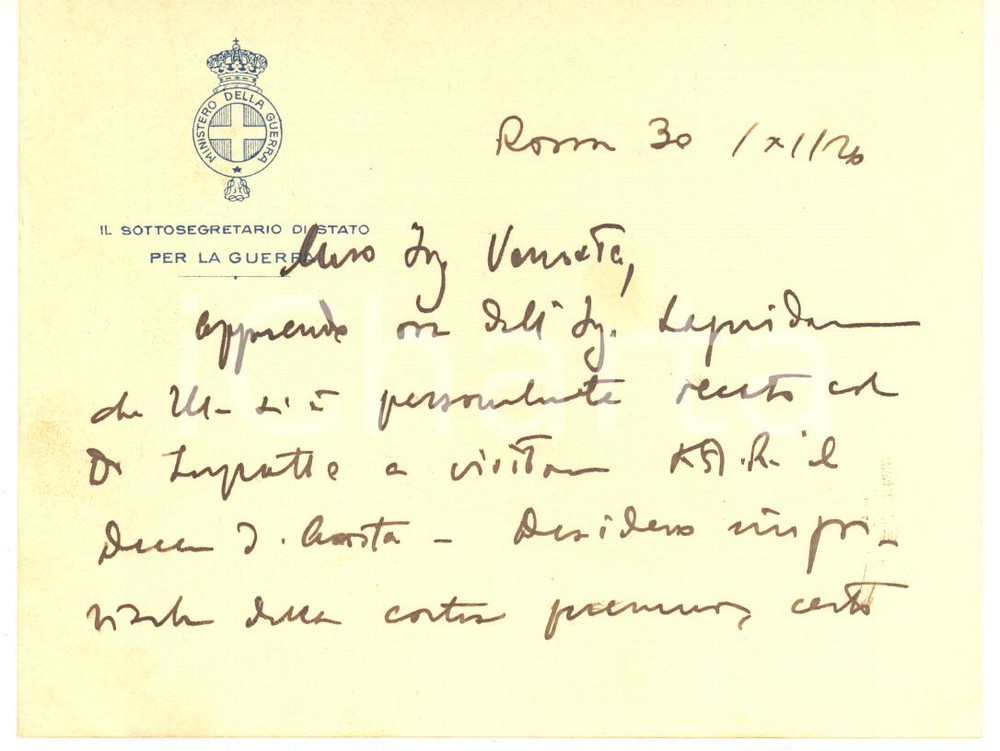 MINISTERO DELLA GUERRA
Roma 30 /XI/26
IL SOTTOSEGRETARIO DI STATO
PER LA GUERRA
Caro Ing.
apprendo ora dall'Ing.
che Ella si è personalmente recato col
Dr a visitare S.A.R. il
Duca d'Aosta - Desidero ringra-
ziarla della cortese premura, certo
iCharta